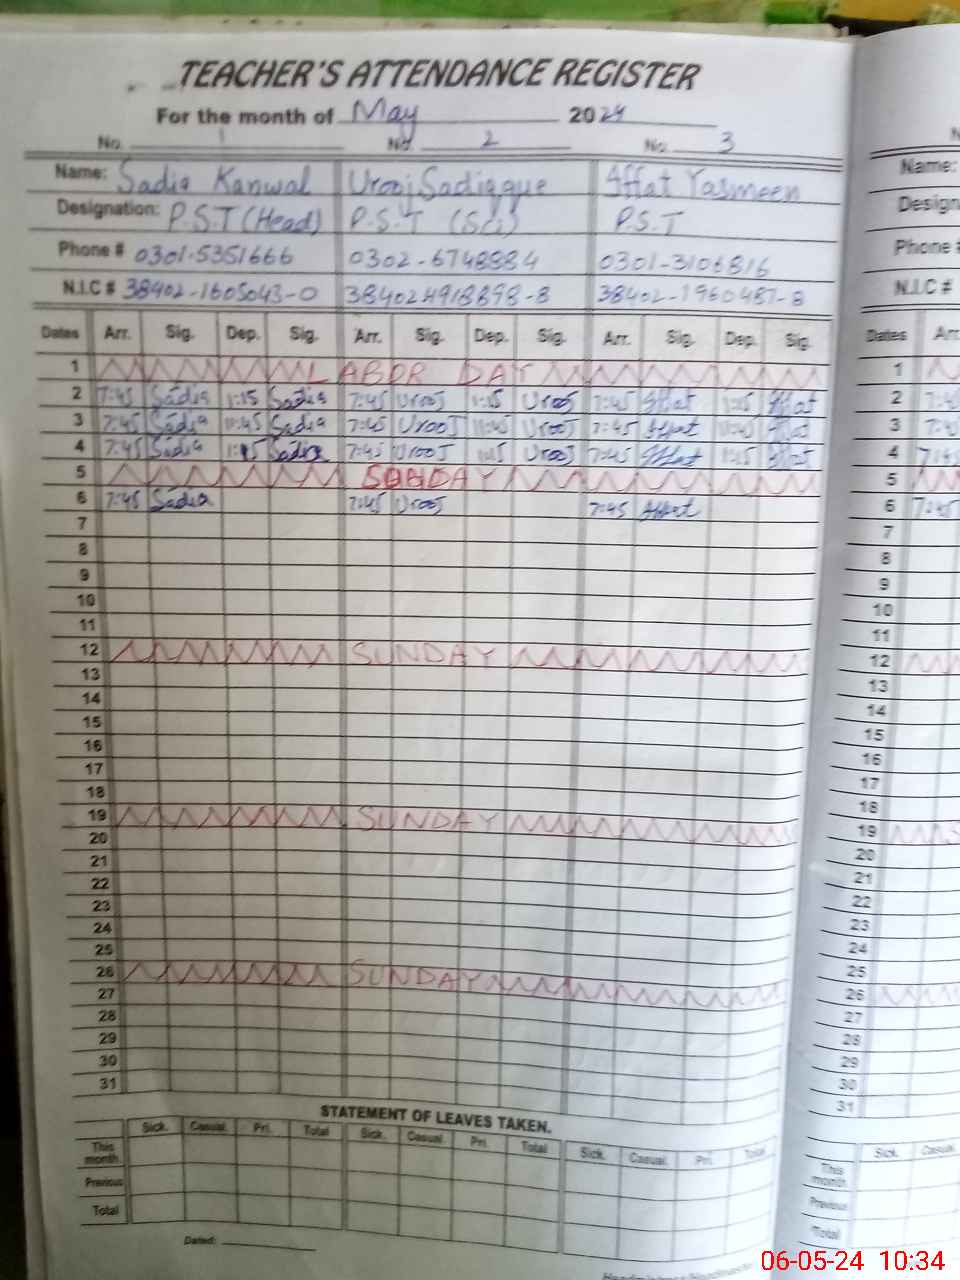 TEACHER'S ATTENDANCE REGISTER
For the month of May 2024
No. 1 No. 2 No. 3
Name: Sadia Kanwal Urooj Sadiqque Iffat Yasmeen Name:
Designation: P.S.T (Head) P.S.T (Sci) P.S.T Design
Phone # 0301-5351666 0302-6748884 0301-3106816 Phone #
N.I.C # 38402-1605043-0 384024918898-8 38402-1960487-8 N.I.C #
Dates Arr. Sig. Dep. Sig. Arr. Sig. Dep. Sig. Arr. Sig. Dep. Sig. Dates Arr
1 LABOR DAY 1
2 7:45 Sadia 1:15 Sadia 7:45 Urooj 1:15 Urooj 7:45 Iffat 1:15 Iffat 2 7:45
3 7:45 Sadia 11:45 Sadia 7:45 Urooj 11:45 Urooj 7:45 Iffat 11:45 Iffat 3 7:45
4 7:45 Sadia 1:15 Sadia 7:45 Urooj 1:15 Urooj 7:45 Iffat 1:15 Iffat 4 7:45
5 SUNDAY 5
6 7:45 Sadia 7:45 Urooj 7:45 Iffat 6 7:45
7 7
8 8
9 9
10 10
11 11
12 SUNDAY 12
13 13
14 14
15 15
16 16
17 17
18 18
19 SUNDAY 19
20 20
21 21
22 22
23 23
24 24
25 25
26 SUNDAY 26
27 27
28 28
29 29
30 30
31 31
STATEMENT OF LEAVES TAKEN.
Sick. Casual. Pri. Total Sick. Casual. Pri. Total Sick. Casual. Pri. Total Sick. Casual.
This month. This month
Previous Previous
Total Total
Dated:
06-05-24 10:34